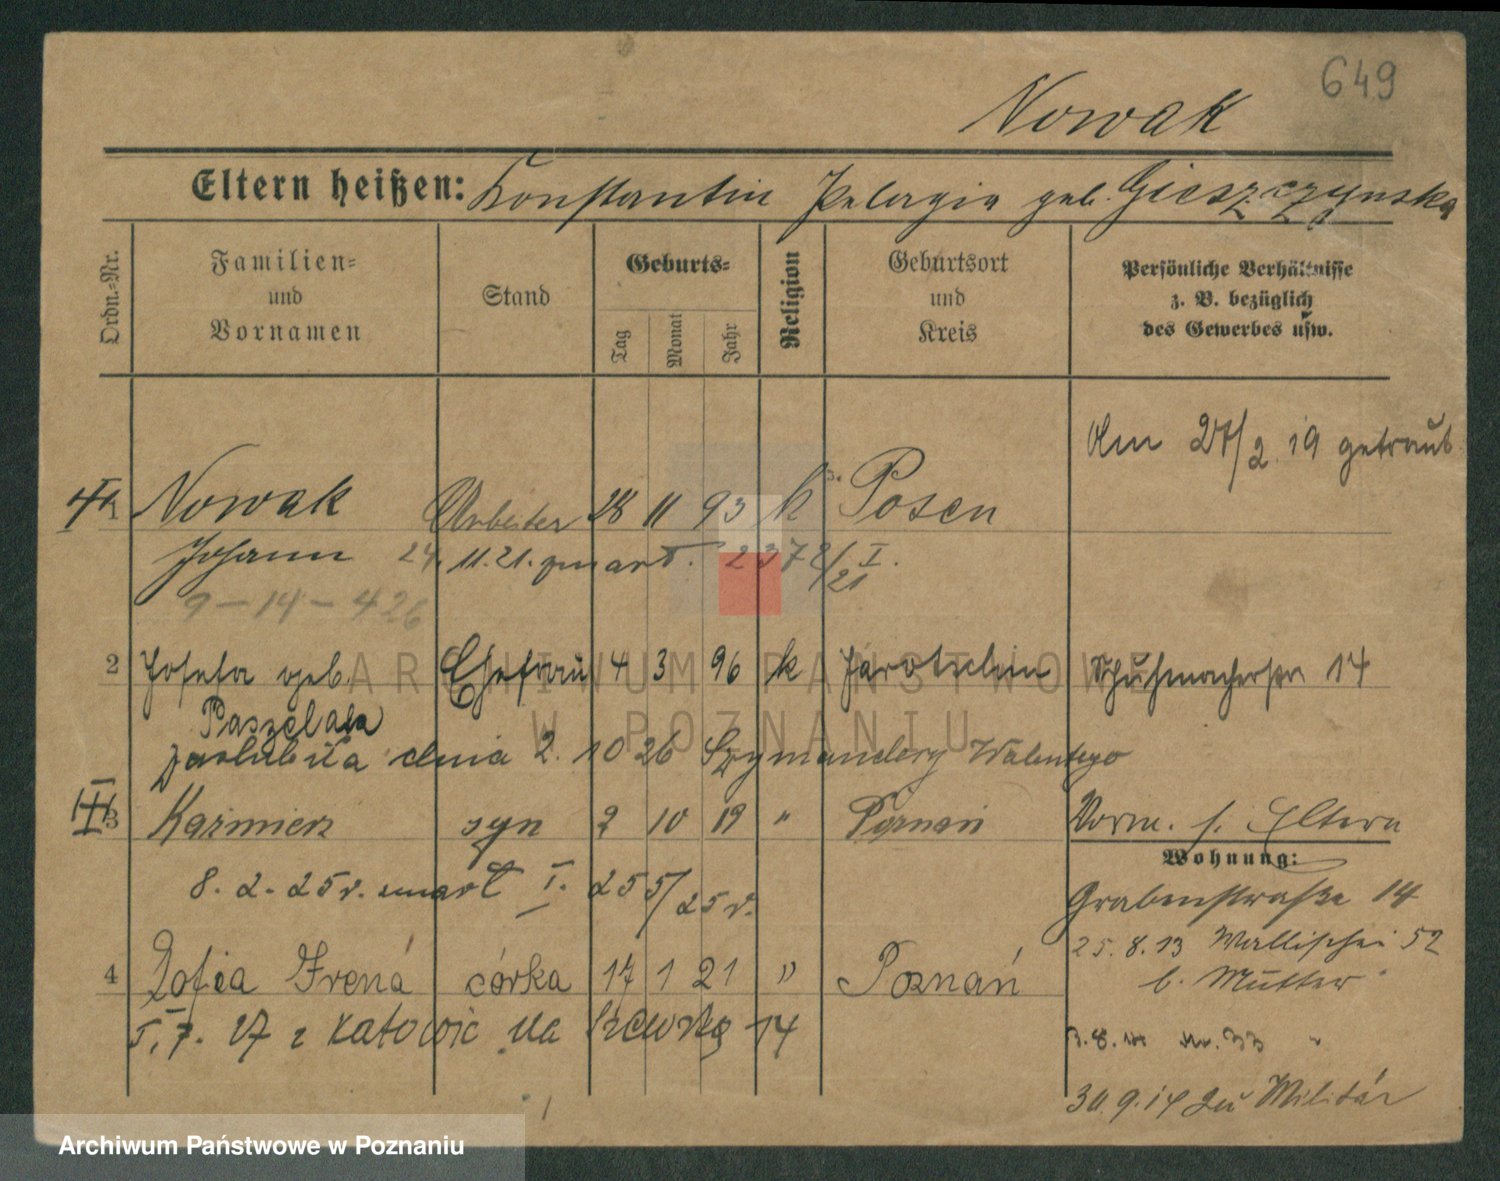 649
Nowak
Eltern heißen: Konstantin Pelagia geb. Gieszczynska
Ordn.-Nr.
Familien- und Vornamen
Stand
Geburts-
Tag
Monat
Jahr
Religion
Geburtsort und Kreis
Persönliche Verhältnisse z. B. bezüglich des Gewerbes usw.
Am 27/2. 19 getraut
1 Nowak Arbeiter 28 11 93 k Posen
Johann 24. 11. 21. zmarł. 2372/21 I.
9 - 14 - 426
2 Josefa geb. Ehefrau 4 3 96 k Jarotschin Schuhmacherstr 14
Paszelala
zaślubiła dnia 2. 10 26 Szymandery Walentego
3 Kazimierz syn 2 10 19 " Poznań Vorm. s. Eltern
Wohnung:
8. 2. 25 r. zmarł I. 255/25 r.
Grabenstraße 14
25. 8. 13 Wallischei 52
b. Mutter
4 Zofia Irena córka 17 1 21 " Poznań
I. 7. 27 z Katowic na Szewską 14
3. 8. 14 Nr. 33 "
30. 9. 14 zu Militär
ARCHIWUM PAŃSTWOWE
W POZNANIU
Archiwum Państwowe w Poznaniu